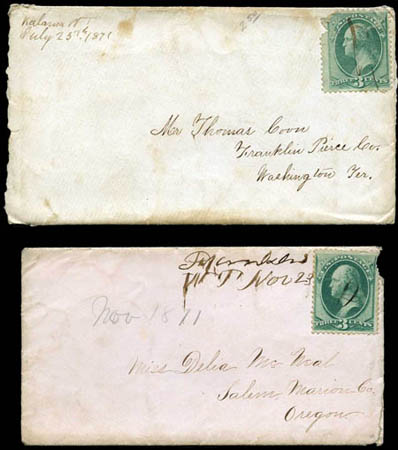 Kalama W T
July 25th 1871
251
Mr Thomas Coon
Franklin Pierce Co.
Washington Ter.
THREE 3 CENTS
W T Nov 23
Nov 18 71
Miss Delia Mc Neal
Salem Marion Co.
Oregon
THREE 3 CENTS